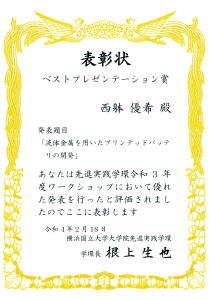 表彰状
ベストプレゼンテーション賞
西躰 優希 殿
発表題目
「流体金属を用いたプリンテッドバッテ
リの開発」
あなたは先進実践学環令和 3 年
度ワークショップにおいて優れ
た発表を行ったと評価されまし
たのでここに表彰します
令和 4 年 2 月 18 日
横浜国立大学大学院先進実践学環
学環長 根上生也